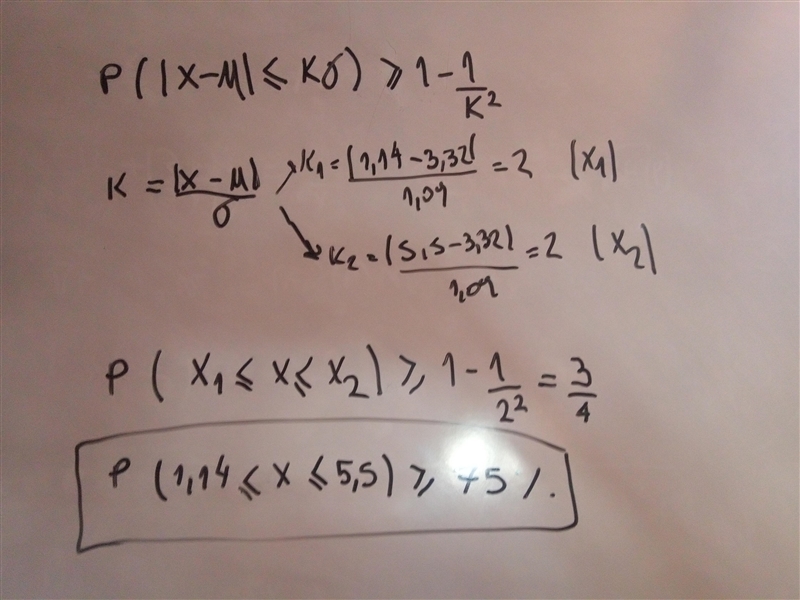 P(|X-μ|≤Kσ)≥1-1/K²
K=|X-μ|/σ K₁=|1,14-3,32|/1,09=2 (X₁)
K₂=|5,5-3,32|/1,09=2 (X₂)
P(X₁≤X≤X₂)≥1-1/2²=3/4
P(1,14≤X≤5,5)≥75%.